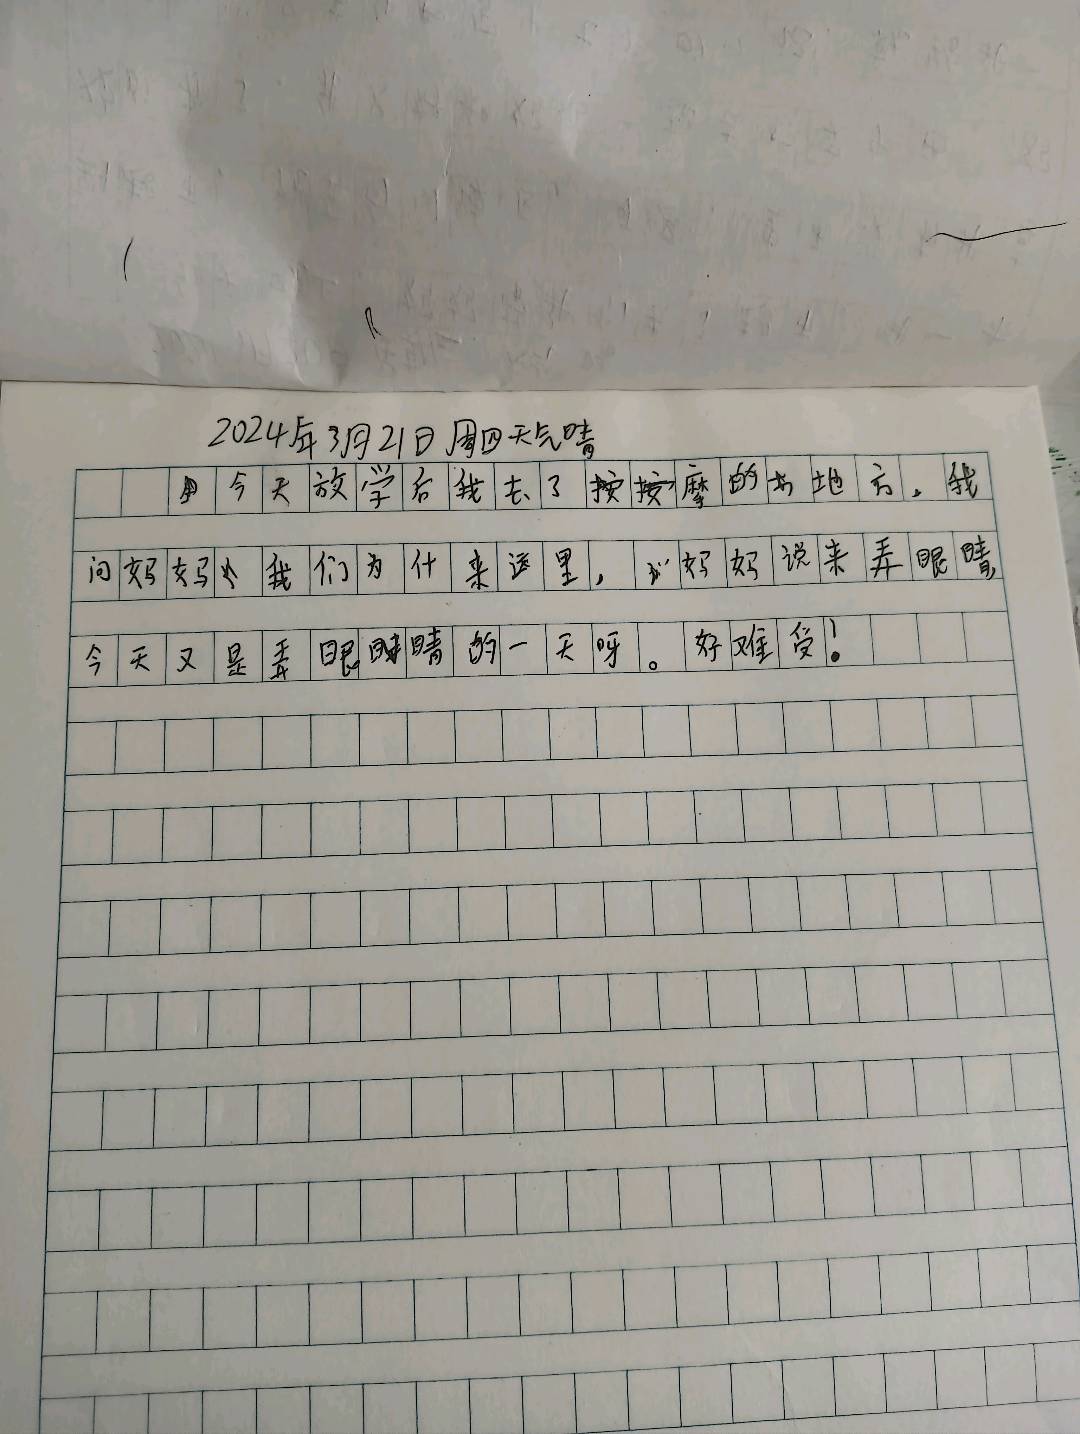 2024年3月21日周四天气晴
今天放学后我去了按摩的地方,我
问妈妈我们为什来这里,妈妈说来弄眼睛,
今天又是弄眼睛的一天呀。好难受!